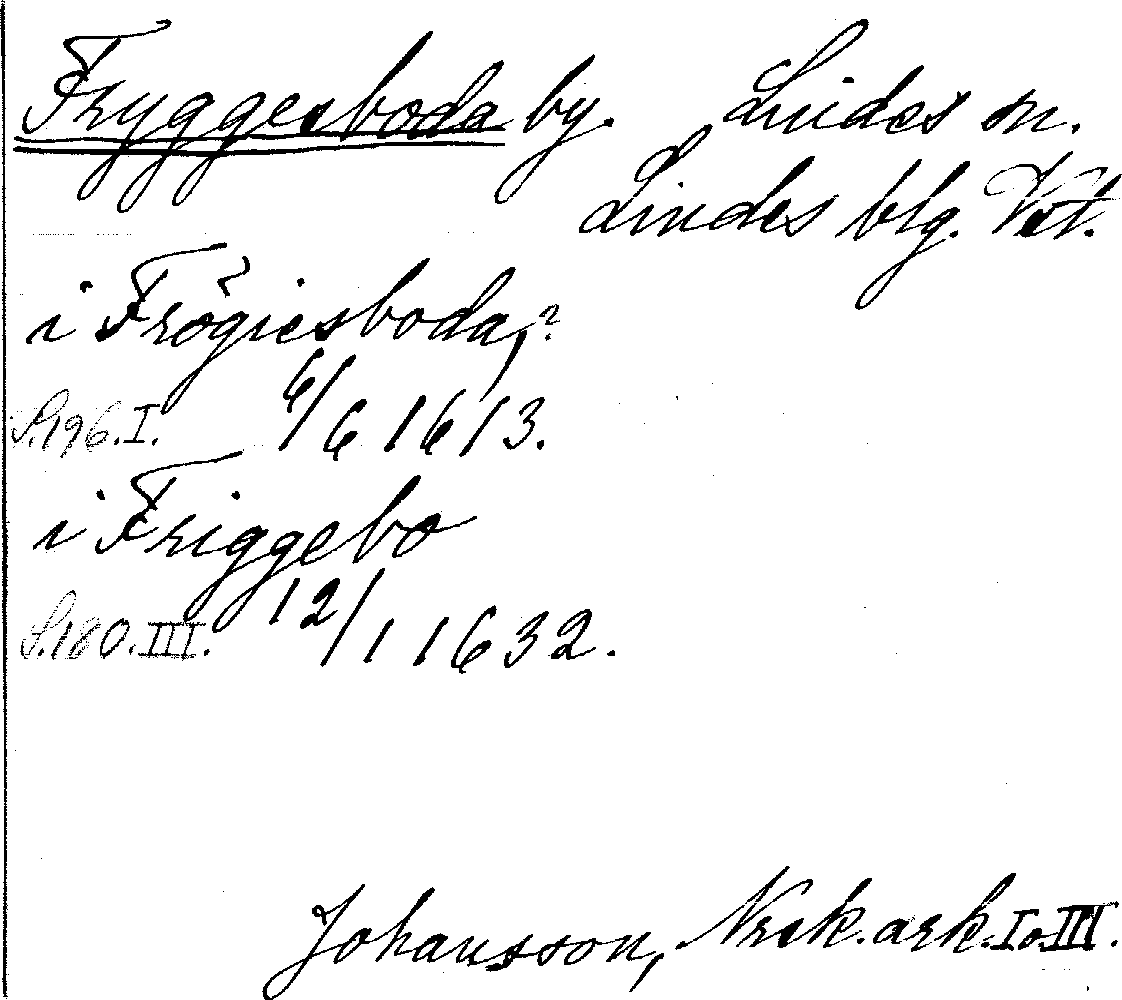 Fryggesboda by. Lindes sn.
Lindes blg. Vst.
i Frögiesboda,?
S.196.I. 6/6 1613.
i Friggebo
S.180.III. 12/1 1632.
Johansson, Nrsk. ark. I o. III.